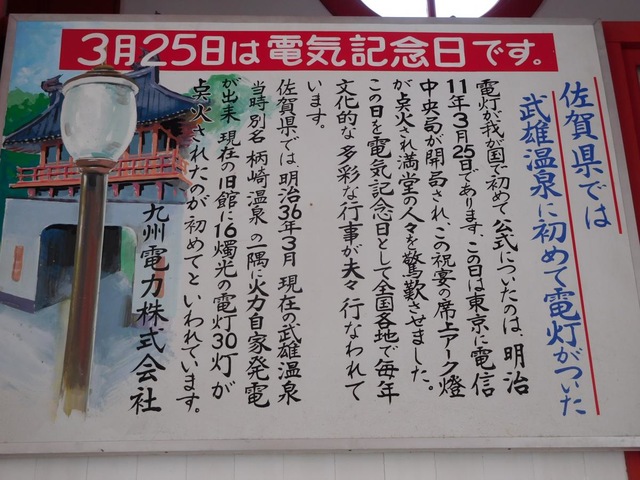 3月25日は電気記念日です。
佐賀県では
武雄温泉に初めて電灯がついた
電灯が我が国で初めて公式についたのは、明治
11年3月25日であります、この日は東京に電信
中央局が開局され、この祝宴の席上アーク燈
が点火され満堂の人々を驚歎させました。
この日を電気記念日として全国各地で毎年
文化的な多彩な行事が夫々行なわれて
います。
佐賀県では、明治36年3月 現在の武雄温泉
当時別名 柄崎温泉 の一隅に火力自家発電
が出来 現在の旧館に16燭光の電灯30灯が
点火されたのが初めてといわれています。
九州電力株式会社